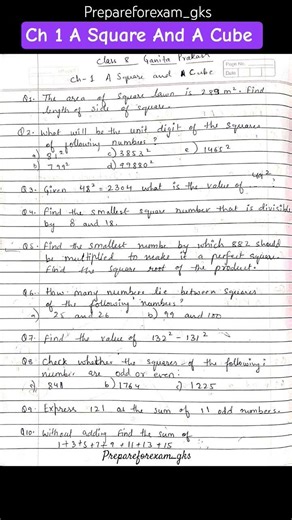 Prepareforexam_gks
Ch 1 A Square And A Cube
Class 8 Ganita Prakash
Page No.
Date
Ch-1 A Square and A Cube
Q1. The area of square lawn is 289 m². Find
length of side of square.
Q2. What will be the unit digit of the squares
of following numbers?
a) 81² c) 3853² e) 1465²
b) 799² d) 99880²
Q3. Given 48² = 2304 what is the value of 49²
Q4. Find the smallest square number that is divisible
by 8 and 18.
Q5. Find the smallest numbe by which 882 should
be multiplied to make it a perfect square.
Find the square root of the product.
Q6. How many numbers lie between squares
of the following numbers?
a) 25 and 26 b) 99 and 100
Q7. Find the value of 132² - 131²
Q8. Check whether the squares of the following
number are odd or even:
a) 848 b) 1764 c) 1225
Q9. Express 121 as the sum of 11 odd numbers.
Q10. Without adding find the sum of
1+3+5+7+9+11+13+15
Prepareforexam_gks